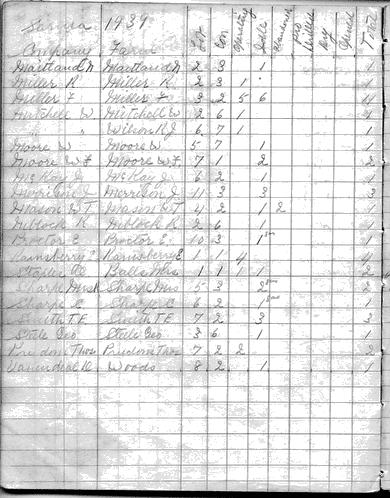 1939
Company Farm Lot Con Operating Idle Abandoned Dry Total
Maitland N Maitland N 2 3 1 1
Miller R Miller R 3 1 1
Miller F Miller F 3 2 5 6 11
Mitchell W Mitchell W 2 6 1
" Wilson R J 6 7 1
Moore W Moore W 5 7 1 1
Moore W F Moore W F 7 1 2 2
McKay J McKay J 6 2 1 1
Morrison J Morrison J 11 3 3 3
Mason W T Mason W T 4 2 1 2 1
Niblock R Niblock R 2 6 1
Proctor E Proctor E 10 3 1 1
Ramsberry E Ramsberry E 1 1 4 4
Balls Mrs 1 1 1 1 2
Sharpe Mrs Sharpe Mrs 5 3 2 2
Sharpe C Sharpe C 6 2 1 1
Smith T E Smith T E 7 2 3 3
Steele Geo Steele Geo 3 6 1 1
Prudom Thos Prudom Thos 7 2 2 2
Woods 8 2 1 1